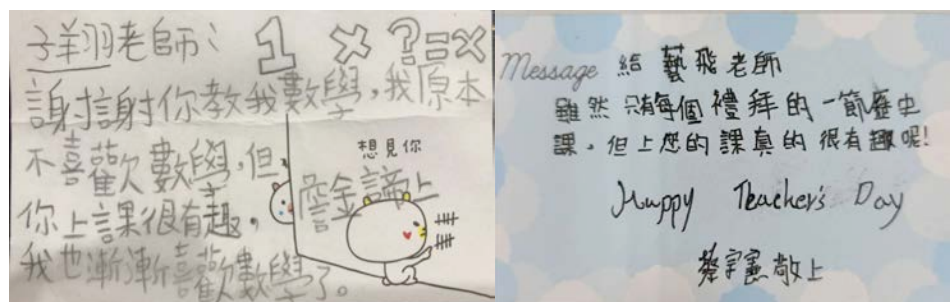 子翔老師：
1 × ? = ×
謝謝你教我數學，我原本
不喜歡數學，但
你上課很有趣，
我也漸漸喜歡數學了。
想見你
上
Message 給 藝飛老師
雖然 只有每個禮拜的一節歷史
課，但上您的課真的很有趣呢!
Huppy Teacher's Day
蔡宇憲敬上